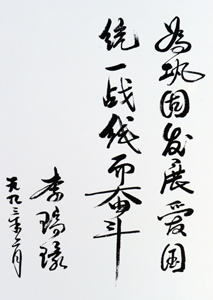 为巩固发展爱国
统一战线而奋斗
李瑞环
一九九三年二月